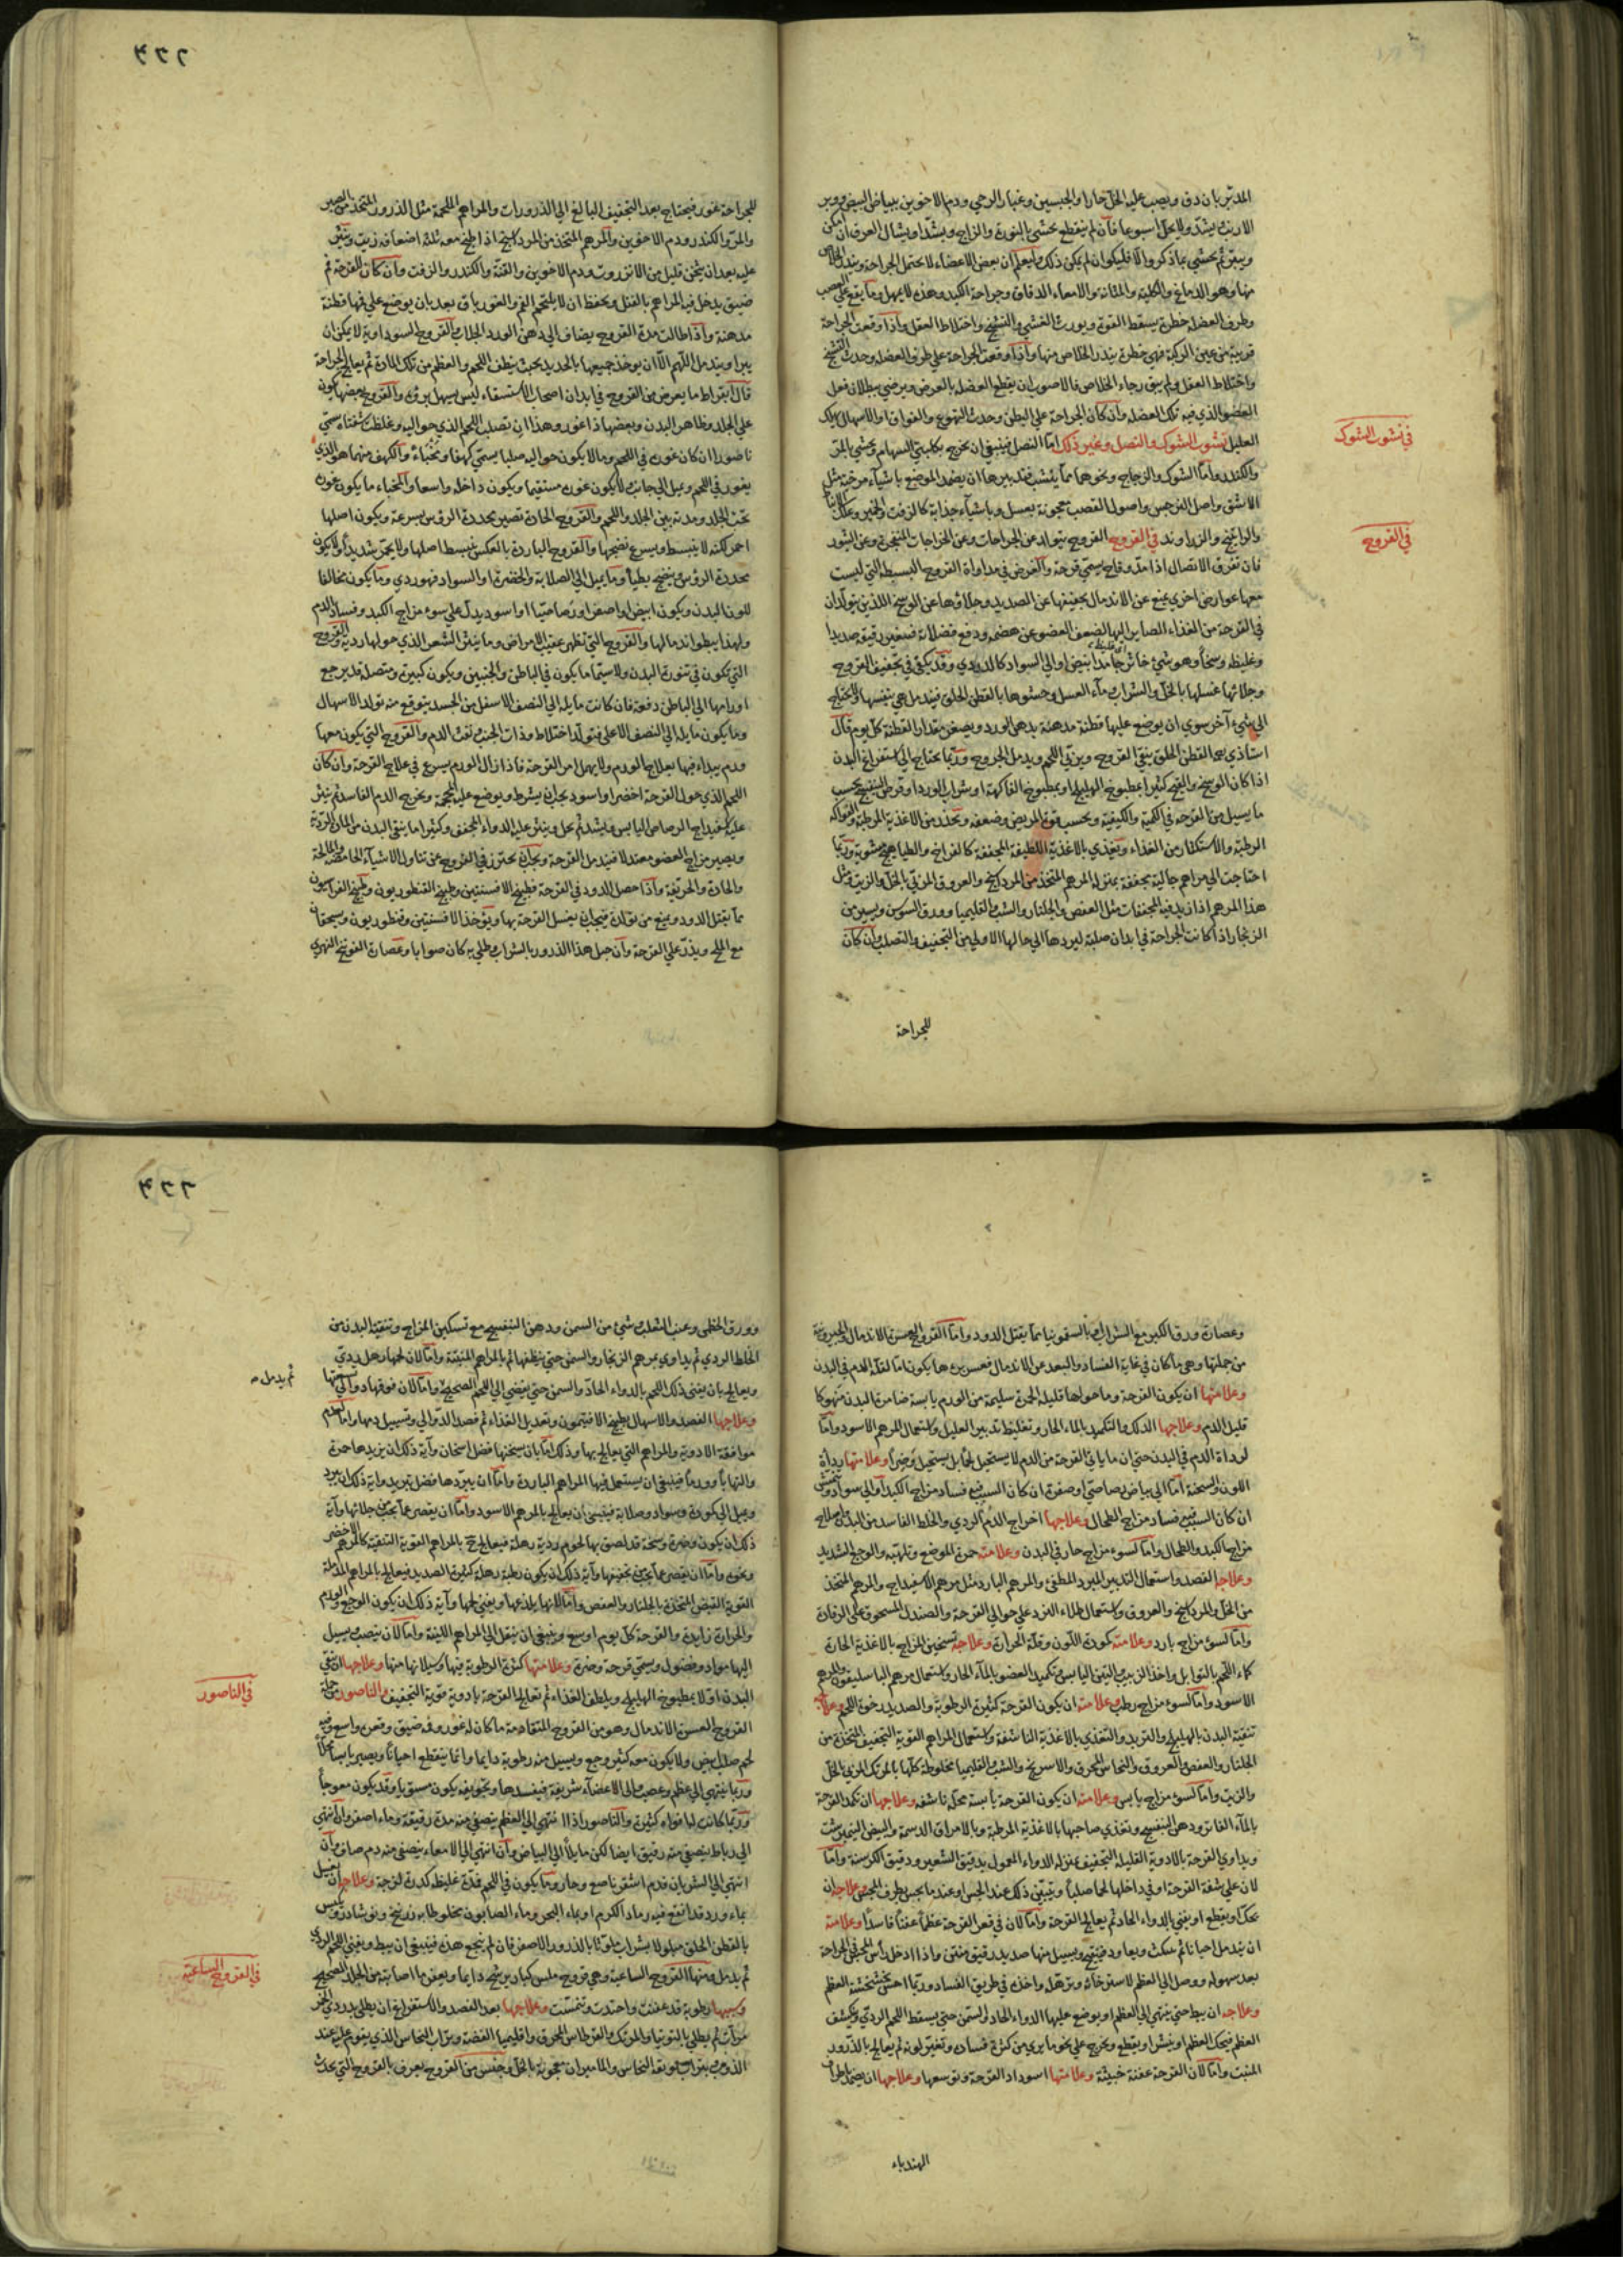 المدبر بان دق ويصب عليه الخل حارا والجبسين وغبار الرحي ودم الاخوين ببياض البيض ووبر
الارنب يشد ولا يحل اسبوعا فان لم ينقطع يحشي بالنورة والزاج ويشد او يشال العرق ان امكن
ويبتر ثم يحشي بما ذكر والا فليكوان لم يكن ذلك وليعلم ان بعض الاعضاء لا يحتمل الجراحة ويندر الخلاص
منها وهو الدماغ والكلية والمثانة والامعاء الدقاق وجراحة الكبد وهذه لا يمهل وما يقع علي العصب
وطرف العضلة خطرة يسقط القوة ويورث الغشي والتشنج واختلاط العقل واذا وقعت الجراحة
قريبة من عين الركبة فهي خطرة يندر الخلاص منها واذا وقعت الجراحة علي طرف العضلة وحدث التشنج
واختلاط العقل ولم يبق رجاء الخلاص فالاصوب ان يقطع العضلة بالعرض ويرضي ببطلان فعل
العضو الذي فيه تلك العضلة وان كان الجراحة علي البطن وحدث التهوع والفواق او الاسهال هلك
العليل نشوب الشوك والنصل وغير ذلك اما النصل فينبغي ان يخرج بكلبتي السهام ويحشي بالمر
والكندر واما الشوك والزجاج ونحوهما مما ينشب فتدبيرها ان يضمد الموضع باشياء مرخية مثل
الاشق واصل النرجس واصول القصب معجونة بعسل وباشياء جذابة كالزفت والخمير وعلك الانباط
والراتنج والزراوند في القروح القروح يتولد عن الجراحات وعن الخراجات المتفجرة وعن البثور
فان تفرق الاتصال اذا مد وقاح يسمي قرحة والغرض في مداواة القروح البسيطة التي ليست
معها عوارض اخري يمنع عن الاندمال تجفيفها عن الصديد وجلاؤها عن الوسخ اللذين يتولدان
في القرحة من الغذاء الصاير اليها لضعف العضو عن هضمه ودفع فضلاته فيصير رقيقه صديدا
وغليظه وسخا وهو شيء خاثر جامد ابيض او الي السواد كالدردي وقد يكفي في تجفيف القروح
وجلائها غسلها بالخل والشراب وماء العسل وحشوها بالقطن الخلق فيندمل هي بنفسها ولا يحتاج
الي شيء آخر سوي ان يوضع عليها قطنة مدهنة بدهن الورد ويصغر مقدار القطنة كل يوم قال
استاذي القطن الخلق ينقي القروح ويربي اللحم ويدمل الجروح وربما يحتاج الي استفراغ البدن
اذا كان الوسخ والقيح كثيرا بمطبوخ الهليلج او بمطبوخ الفاكهة او شراب الورد او قرص البنفسج بحسب
ما يسيل من القرحة في الكمية والكيفية وبحسب قوة المريض وضعفه ويحذر من الاغذية المرطبة والفواكه
الرطبة والاستكثار من الغذاء ويغذي بالاغذية اللطيفة المجففة كالفراخ والطياهيج مشوية وربما
احتاجت الي مراهم جالية مجففة بمنزلة المرهم المتخذ من المرداسنج والعروق المربي بالخل والزيت مثل
هذا المرهم اذا زيد فيه المجففات مثل العفص والجلنار والشب والقليميا وورق السوسن ويسير من
الزنجار اذا كانت الجراحة في ابدان صلبة ليردها الي حالها الاولي من التجفيف والتصلب وان كان
للجراحة
في نشوب الشوك
في القروح
٢٢٦
للجراحة غور فيحتاج بعد التجفيف البالغ الي الذرورات والمراهم الملحمة مثل الذرور المتخذ من الصبر
والمر والكندر ودم الاخوين والمرهم المتخذ من المرداسنج اذا طبخ معه ثلثة اضعافه زيت وينثر
عليه بعد ان يثخن قليل من الانزروت ودم الاخوين والقنة والكندر والزفت وان كان للقرحة فم
ضيق يدخل فيه المراهم بالفتل ويحفظ ان لا يلتحم الفم والغور باق بعد بان يوضع علي فمها قطنة
مدهنة واذا طالت مدة القروح يضاف الي دهن الورد الجلاب والقروح السوداوية لا يمكن ان
يبرا ويندمل اللهم الا ان يوخذ جميعها بالحديد بحيث ينظف اللحم والعظم من تلك المادة ثم يعالج الجراحة
قال بقراط ما يعرض من القروح في ابدان اصحاب الاستسقاء ليس يسهل برؤه والقروح بعضها يكون
علي الجلد وظاهر البدن وبعضها ذا غور وهذا ان تصلب اللحم الذي حواليه وغلظت شفتاه سمي
ناصورا ان كان غوره في اللحم وما لا يكون حواليه صلبا يسمي كهفا ومخبأ والكهف منهما هو الذي
يغور في اللحم ويميل الي جانب لا يكون غوره مستقيما ويكون داخله واسعا والمخباء ما يكون غوره
تحت الجلد ومدته بين الجلد واللحم والقروح الحارة تصير محددة الرؤس بسرعة ويكون اصلها
احمر لكنه لا ينبسط ويسرع نضجها والقروح الباردة بالعكس ينبسط اصلها ولا يحمر شديدا ولا يكون
محددة الرؤس وينضج بطيأ وما يميل الي الصلابة والخضرة او السواد فهو ردي وما يكون مخالفا
للون البدن ويكون ابيض او اصفر او رصاصيا او اسود يدل علي سوء مزاج الكبد وفساد الدم
ولهذا يبطو اندمالها والقروح التي تظهر عقيب الامراض وما ينثر الشعر الذي حولها ردية والقروح
التي يكون في تنورة البدن ولا سيما ما يكون في الباطن والجنبين ويكون كبيرة ومتصلة قد يرجع
اورامها الي الباطن دفعة فان كانت مايلة الي النصف الاسفل من الجسد يتوقع منه تولد الاسهال
وما يكون مايلة الي النصف الاعلي فتولد اختلاط وذات الجنب ونفث الدم والقروح التي يكون معها
ورم يبداء فيها بعلاج الورم ولا يهمل امر القرحة فاذا زال الورم يسرع في علاج القرحة وان كان
اللحم الذي حول القرحة اخضر او اسود يجب ان يشرط ويوضع عليه المحجمة ويخرج الدم الفاسد ثم ينثر
عليه اسفيداج الرصاص اليابس ويشد ثم يحل وينثر عليه الدواء المجفف وكثيرا ما ينقي البدن من المادة الردية
ويصير مزاج العضو معتدلا فيندمل القرحة ويجب ان يحترز في القروح عن تناول الاشياء الحامضة والمالحة
والحادة والحريفة واذا حصل الدود في القرحة فطبيخ الافسنتين وطبيخ القنطوريون وطبيخ الفراسيون
مما يقتل الدود ويمنع من تولده فيجب ان يغسل القرحة بها ويؤخذ الافسنتين وقنطوريون ويسحقان
مع الملح ويذر علي القرحة وان جبل هذا الذرور بالشراب وطلي به كان صوابا وعصارة الفوتنج النهري
وعصارة ورق الكبر مع الشراب او بالسقمونيا مما يقتل الدود واما القروح العسرة الاندمال والخيرونية
من جملتها وهي ما كان في غاية الفساد والبعد عن الاندمال فعسر برءها يكون اما لقلة الدم في البدن
وعلامتها ان يكون القرحة وما حولها قليلة الحمرة سليمة من الورم يابسة ضامرة البدن منهوكا
قليل الدم وعلاجها الدلك والتكميد بالماء الحار وتغليظ تدبير العليل واستعمال المرهم الاسود واما
لرداة الدم في البدن حتي ان ما ياتي القرحة من الدم لا يستحيل لحما بل يستحيل وضرا وعلامتها رداة
اللون والسحنة اما الي بياض رصاصي او صفرة ان كان السبب فيه فساد مزاج الكبد او الي سواد ونمش
ان كان السبب فيه فساد مزاج الطحال وعلاجها اخراج الدم الردي والخلط الفاسد من البدن واصلاح
مزاج الكبد والطحال واما لسوء مزاج حار في البدن وعلامته حمرة الموضع وتلهبه والوجع الشديد
وعلاجه الفصد واستعمال التدبير المبرد المطفئ والمرهم البارد مثل مرهم الاسفيداج والمرهم المتخذ
من الخل والمرداسنج والعروق واستعمال طلاء البرد علي حوالي القرحة والصندل المسحوق علي الرمانة
واما لسوء مزاج بارد وعلامته كمودة اللون وقلة الحرارة وعلاجه تسخين المزاج بالاغذية الحارة
كماء اللحم بالتوابل واخذ الزبيب والتين اليابس وتكميد العضو بالماء الحار واستعمال مرهم الباسليقون والمرهم
الاسود واما لسوء مزاج رطب وعلامته ان يكون القرحة كثيرة الرطوبة والصديد رخوة اللحم وعلاجه
تنقية البدن بالهليلج والتربد والتغذي بالاغذية الناشفة واستعمال المراهم القوية التجفيف المتخذة من
الجلنار والعفص والعروق والنحاس المحرق والاسرنج والشب والقليميا مخلوطة كلها بالمرتك المربي بالخل
والزيت واما لسوء مزاج يابس وعلامته ان يكون القرحة يابسة قحلة ناشفة وعلاجها ان تكمد القرحة
بالماء الفاتر ودهن البنفسج وتغذي صاحبها بالاغذية المرطبة وبالامراق الدسمة والبيض النيمبرشت
ويداوي القرحة بالادوية القليلة التجفيف بمنزلة الدواء المعمول بدقيق الشعير ودقيق الكرسنة واما
لان علي شفة القرحة او في داخلها لحما صلبا ويتبين ذلك عند الجس او عند ما يحس بطرف المجس وعلاجه ان
يحك او يقطع او يفني بالدواء الحاد ثم يعالج القرحة واما لان في قعر القرحة عظما عفنا فاسدا وعلامته
ان يندمل احيانا ثم ينكث ويعاود فيتقيح ويسيل منها صديد رقيق منتن واذا ادخل رأس المجس في الجراحة
بعد سهوله ووصل الي العظم لاسترخائه وترهل واخذه في طريق الفساد وربما احس بخشخشة العظم
وعلاجه ان يبط حتي ينتهي الي العظم او يوضع عليها الدواء الحاد والسمن حتي يسقط اللحم الردي وينكشف
العظم فيحك العظم او ينشر او يقطع ويخرج علي نحو ما يري من كثرة فساده وتغير لونه ثم يعالج بالذرور
المنبت واما لان القرحة عفنة خبيثة وعلامتها اسوداد القرحة وتوسعها وعلاجها ان يضمد باطراف
الهندباء
٢٢٦
وورق الخطمي وعنب الثعلب وشيء من السمن ودهن البنفسج مع تسكين المزاج وتنقية البدن من
الخلط الردي ثم يداوي بمرهم الزنجار والسمن حتي ينظفها ثم بالمراهم المنبتة واما لان لحمها رهل ردي
ويعالج بان يفني ذلك اللحم بالدواء الحاد والسمن حتي يفضي الي اللحم الصحيح واما لان فوقها دوالي تسقيها
وعلاجها الفصد والاسهال بطبيخ الافتيمون وتعديل الغذاء ثم فصد الدوالي وتسييل دمها واما لعدم
موافقة الادوية والمراهم التي يعالج بها وذلك اما بان يسخنها فضل اسخان وآية ذلك ان يزيدها حمرة
والتهابا وورما فينبغي ان يستعمل فيها المراهم الباردة واما ان يبردها فضل تبريد واية ذلك ان يبرد
ويميل الي كمودة وسواد وصلابة فينبغي ان يعالج بالمرهم الاسود واما ان يقصر عما يجب من جلائها وآية
ذلك ان يكون وضرة وسخة قد لصق بها لحوم ردية رهلة فيعالج بالمراهم القوية التنقية كالمرهم الاخضر
ونحوه واما ان يقصر عما يجب من تجفيفها وآية ذلك ان يكون رطبة رهلة كثيرة الصديد فيعالج بالمراهم المدملة
القوية القبض المتخذة بالجلنار والعفص واما لانها يلذعها ويفني لحمها وآية ذلك ان يكون الوجع والورم
والحرارة زايدة والقرحة كل يوم اوسع وينبغي ان ينقل الي المراهم اللينة واما لان ينصب يسيل
اليها مواد وفضول ويسمي قرحة وضرة وعلامتها كثرة الرطوبة فيها وسيلانها منها وعلاجها ان ينقي
البدن اولا بمطبوخ الهليلج ويلطف الغذاء ثم تعالج القرحة بادوية قوية التجفيف والناصور من جملة
القروح العسرة الاندمال وهو من القروح المتقادمة ما كان له غور وفم ضيق وقعر واسع وفيه
لحم صلب ابيض ولا يكون معه كثير وجع ويسيل منه رطوبة دايما وانما ينقطع احيانا ويصير يابسا
وربما ينتهي الي عظم وعصب والي الاعضاء شريفة فيفسدها وتجويفه يكون مستويا وقد يكون معوجا
وربما كانت لها افواه كثيرة والناصور اذا انتهي الي العظم ينصفي عنه مدة رقيقة وماء اصفر وان انتهي
الي رباط ينصفي منه رقيق ايضا لكن مايلا الي البياض وان انتهي الي الامعاء ينصفي منه دم صاف وان
انتهي الي الشريان فدم اشقر ناصع وحار وما يكون في اللحم فمدة غليظة كدرة لزجة وعلاجه ان يغسل
بماء ورد قد انقع فيه رماد الكرم او بماء البحر وماء الصابون مخلوطا به زرنيخ ونوشادر ويكبس
بالقطن الخلق مبلولا بشراب ملوثا بالذرور الاصفر فان لم ينجع هذه فينبغي ان يبط ويفني اللحم الردي
ثم يدمل ومنها القروح الساعية وهي قروح ملس كبار يرشح دايما ويعفن ما اصابته من الجلد الصحيح
وسببها رطوبة قد عفنت واحتدت وتنمشت وعلاجها بعد الفصد والاستفراغ ان يطلي بدردي الخمر
مرات ثم يطلي بالتوتيا والمرتك والقرطاس المحرق واقليميا الفضة وتراب النحاس الذي يقوم عليه عند
الذوب وبتراب بوتقة النحاس والماميران معجونة بالخل وجنس من القروح يعرف بالقروح التي يحدث
ثم يدمل صح
في الناصور
في القروح الساعية